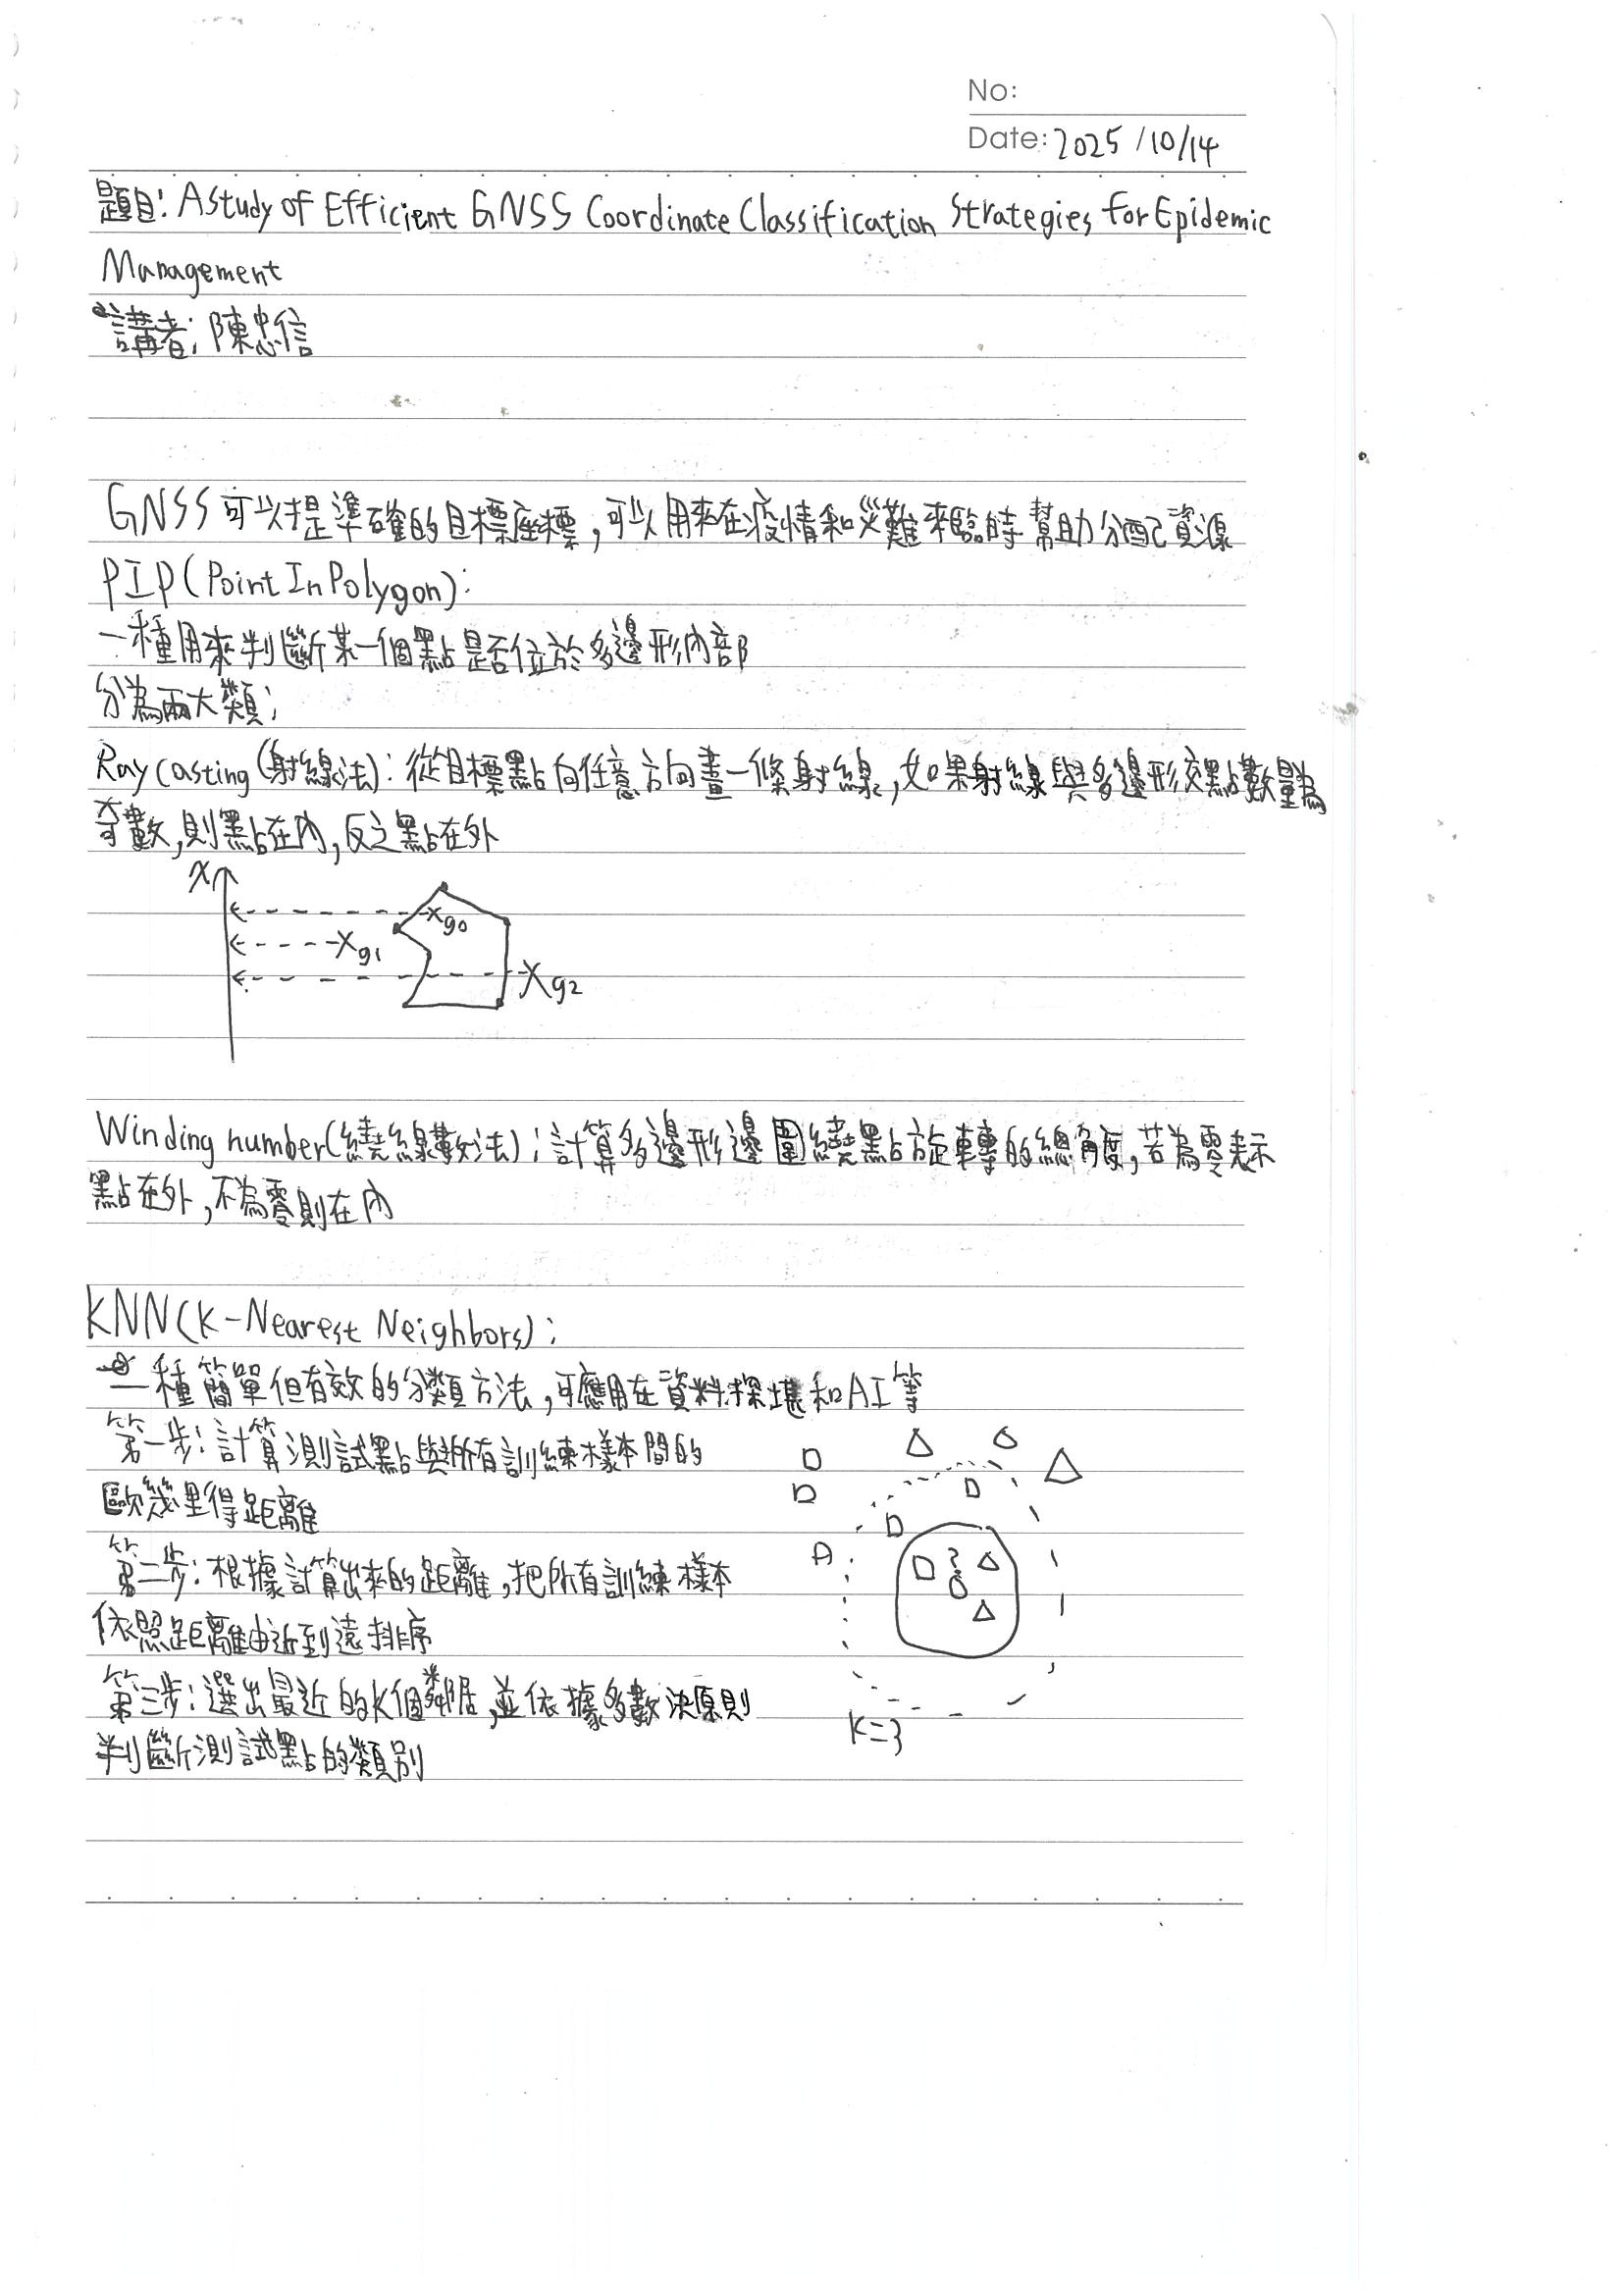 No:
Date: 2025/10/14
題目: A Study of Efficient GNSS Coordinate Classification Strategies for Epidemic
Management
講者: 陳忠信
GNSS可以提準確的目標座標,可以用來在疫情和災難來臨時幫助分配資源
PIP(Point In Polygon):
一種用來判斷某一個點是否位於多邊形內部
分為兩大類:
Ray casting(射線法):從目標點向任意方向畫一條射線,如果射線與多邊形交點數量為
奇數,則點在內,反之點在外
x
g0
g1
g2
Winding number(繞線數法):計算多邊形邊圍繞點旋轉的總角度,若為零表示
點在外,不為零則在內
KNN(K-Nearest Neighbors):
一種簡單但有效的分類方法,可應用在資料探堪和AI等
第一步:計算測試點與所有訓練樣本間的
歐幾里得距離
第二步:根據計算出來的距離,把所有訓練樣本
依照距離由近到遠排序
第三步:選出最近的K個鄰居,並依據多數決原則
判斷測試點的類別
?
K=3